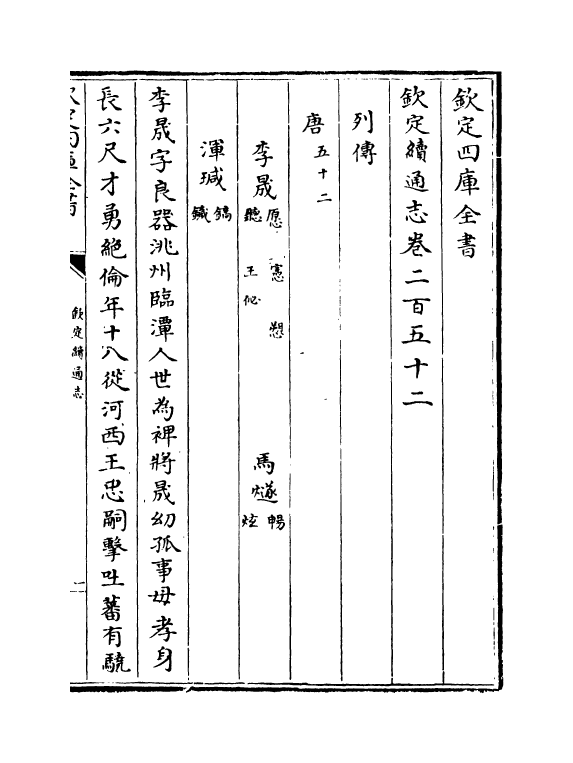 欽定四庫全書
欽定續通志卷二百五十二
列傳
唐五十二
李晟愿憲愬聽王佖 馬燧暢炫
渾瑊鎬鐬
李晟字良器洮州臨潭人世為裨將晟幼孤事母孝身
長六尺才勇絶倫年十八從河西王忠嗣擊吐蕃有驍
欽定四庫全書
欽定續通志